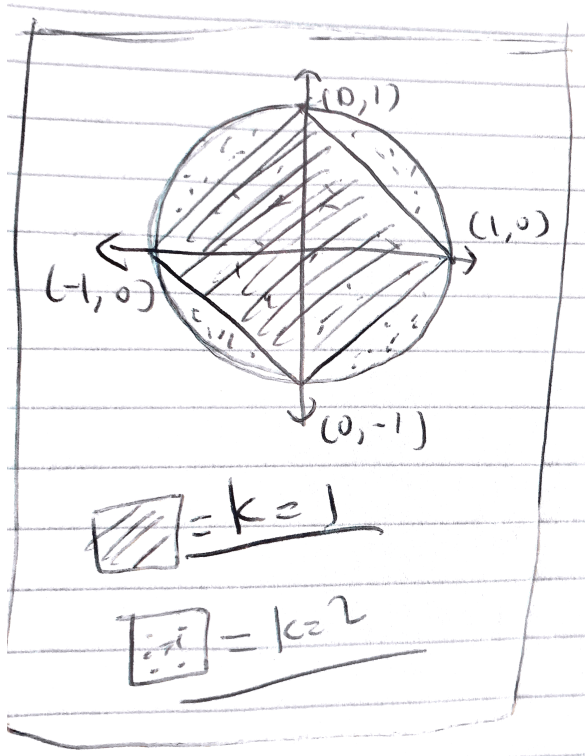 (0,1)
(1,0)
(-1,0)
(0,-1)
= k = 1
= k=2